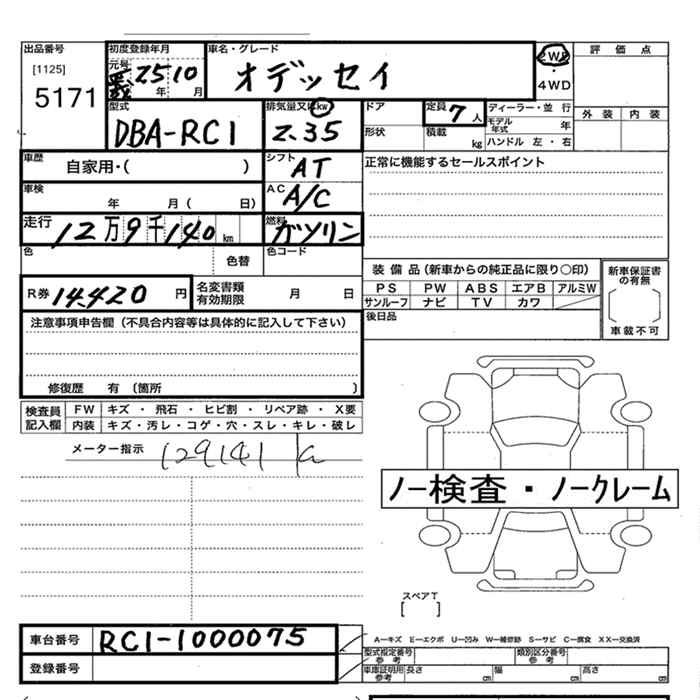 出品番号 初度登録年月 車名・グレード 2WD 評価点
[1125] 元号 25 10 オデッセイ 4WD
5171 年 月 外装 内装
型式 排気量又はkw ドア 定員 7 人 ディーラー・並行
DBA-RC1 2.35 形状 積載 kg モデル年式 年
ハンドル 左・右
車歴 自家用・( ) シフト AT 正常に機能するセールスポイント
車検 年 月( 日) AC A/C
走行 12万9千140 km 燃料 ガソリン
色 色替 色コード
装備品(新車からの純正品に限り○印) 新車保証書の有無
R券 14,420 円 名変書類有効期限 月 日 PS PW ABS エアB アルミW
サンルーフ ナビ TV カワ
注意事項申告欄(不具合内容等は具体的に記入して下さい) 後日品 車載不可
修復歴 有 (箇所 )
検査員記入欄 FW キズ・飛石・ヒビ割・リペア跡・X要
内装 キズ・汚レ・コゲ・穴・スレ・キレ・破レ
メーター指示 129141 k
ノー検査・ノークレーム
スペアT
[ ]
車台番号 RC1-1000075 A-キズ E-エクボ U-凹み W-補修跡 S-サビ C-腐食 XX-交換済
型式指定番号 参考 類別区分番号 参考
登録番号 車庫証明用 参考 長さ cm 幅 cm 高さ cm